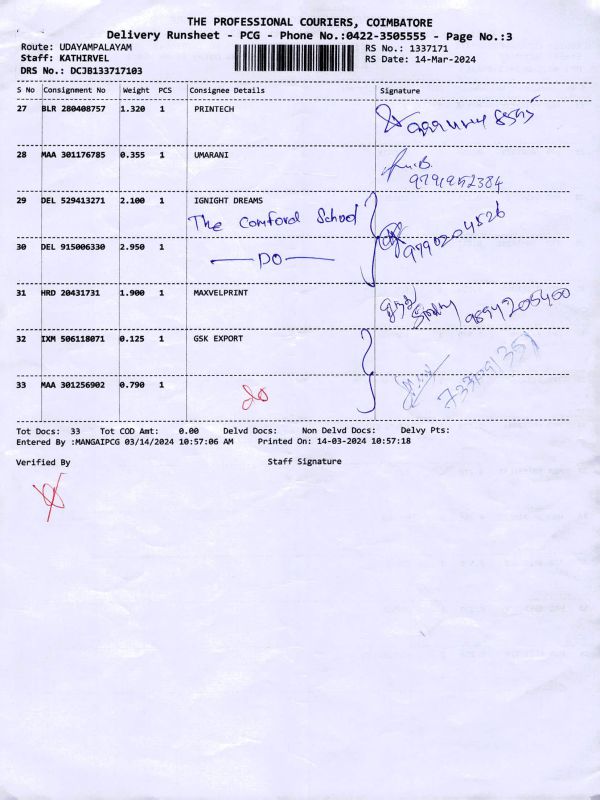 THE PROFESSIONAL COURIERS, COIMBATORE
Delivery Runsheet - PCG - Phone No.:0422-3505555 - Page No.:3
Route: UDAYAMPALAYAM
RS No.: 1337171
Staff: KATHIRVEL
RS Date: 14-Mar-2024
DRS No.: DCJB133717103
S No Consignment No Weight PCS Consignee Details Signature
27 BLR 280408757 1.320 1 PRINTECH
28 MAA 301176785 0.355 1 UMARANI
9791952384
29 DEL 529413271 2.100 1 IGNIGHT DREAMS
The Comford School
9790204526
30 DEL 915006330 2.950 1
DO
31 HRD 20431731 1.900 1 MAXVELPRINT
9894205400
32 IXM 506118071 0.125 1 GSK EXPORT
33 MAA 301256902 0.790 1
do
Tot Docs: 33 Tot COD Amt: 0.00 Delvd Docs: Non Delvd Docs: Delvy Pts:
Entered By :MANGAIPCG 03/14/2024 10:57:06 AM Printed On: 14-03-2024 10:57:18
Verified By Staff Signature